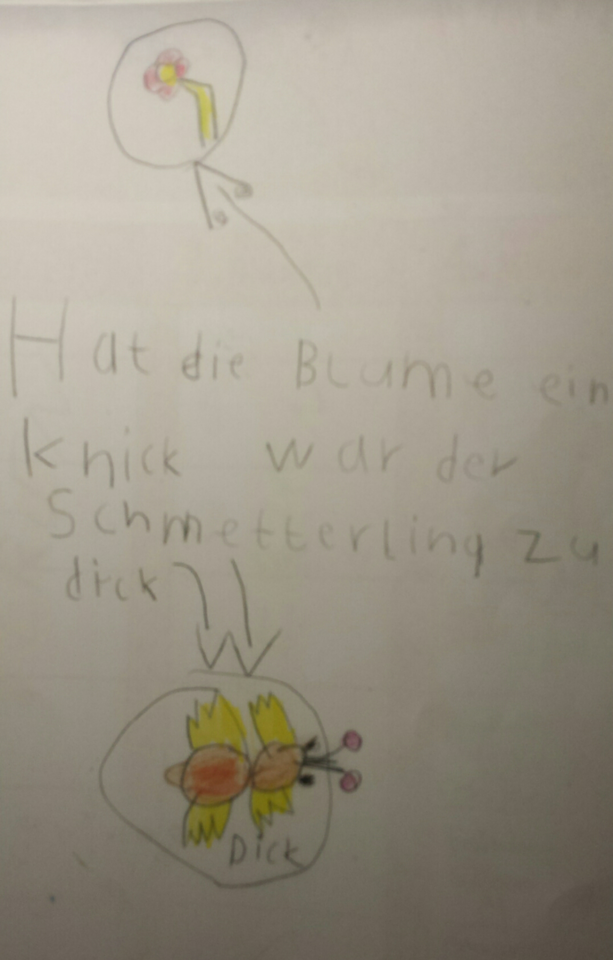 Hat die Blume ein
Knick war der
Schmetterling zu
dick
Dick